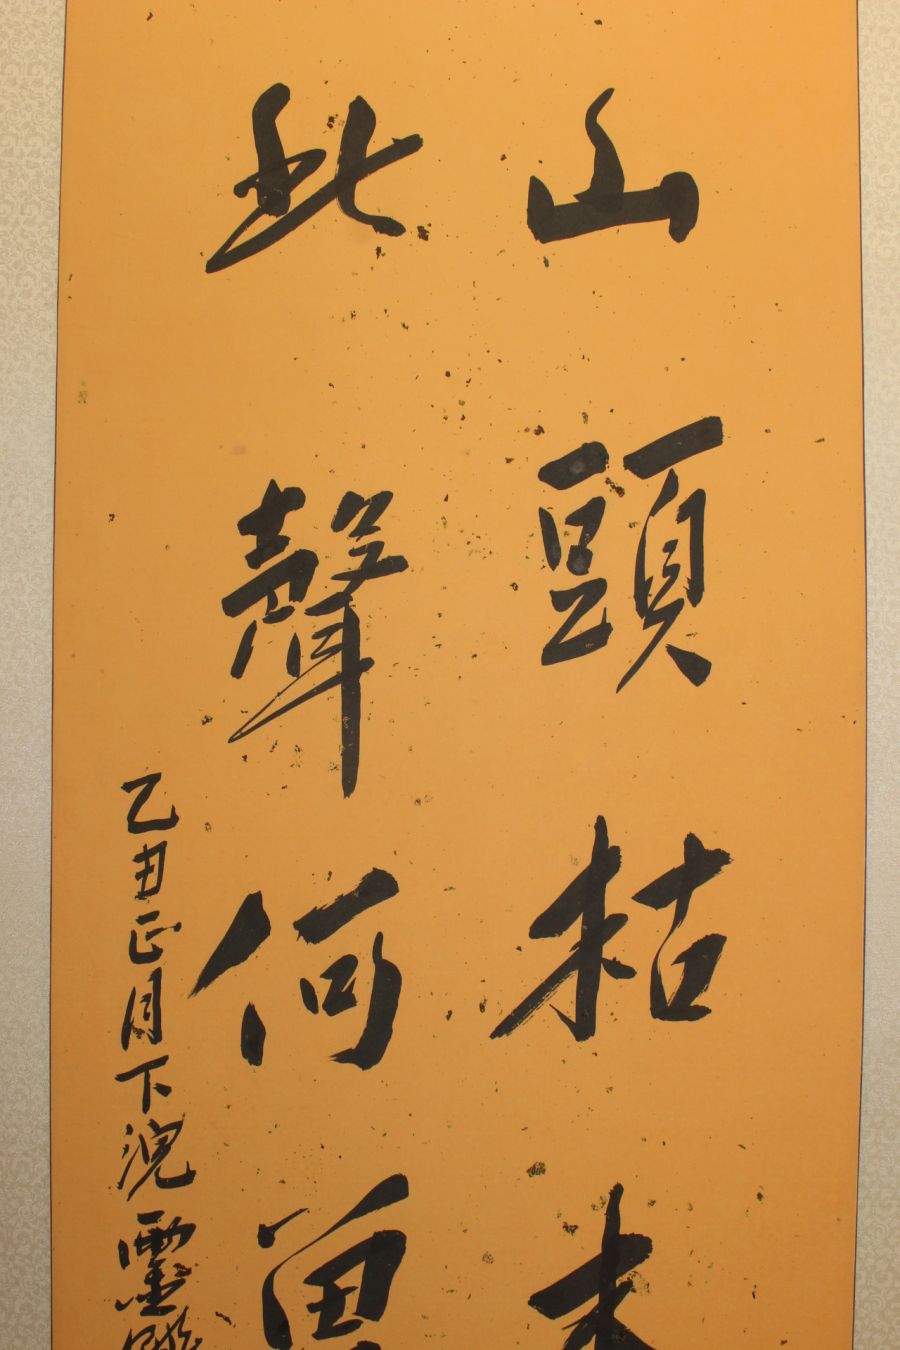 山頭枯木
此聲何
乙丑正月下浣靈